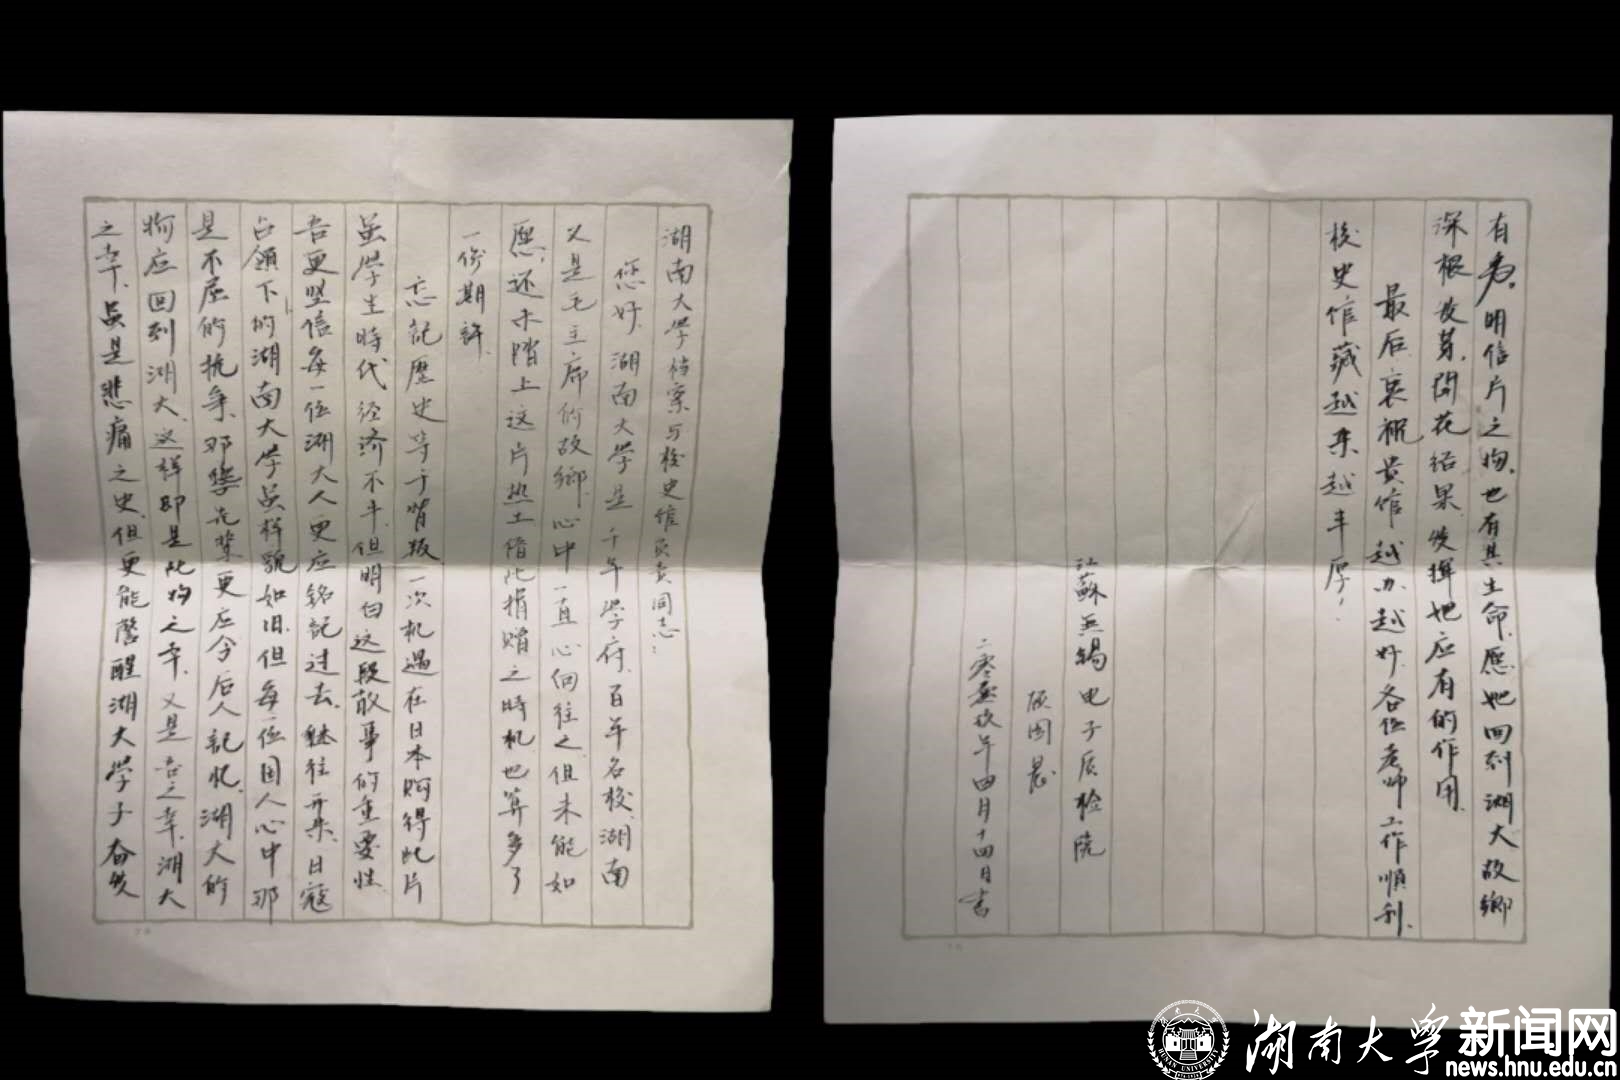 湖南大学档案与校史馆负责同志：
您好，湖南大学是千年学府，百年名校，湖南
又是毛主席的故鄉，心中一直心向往之，但未能如
愿，还未踏上这片热土，借此捐赠之时机也算多了
一份期許。
忘記歷史等于背叛，一次机遇在日本购得此片
虽学生時代经济不丰，但明白这段故事的重要性
吾更坚信每一位湖大人更应铭記过去，继往开来，日寇
占领下的湖南大学虽样貌如旧，但每一位国人心中那
是不屈的抗争，那 更应令后人記忆，湖大的
物应回到湖大，这样即是此物之幸，又是吾之幸，湖大
之幸，虽是悲痛之史，但更能警醒湖大学子奋发
有为。明信片之物，也有其生命，愿她回到湖大故鄉
深根发芽，開花结果，发挥她应有的作用。
最后，衷祝贵馆越办越好，各位老师工作順利，
校史馆藏越来越丰厚！
江蘇無錫电子质检院
顾国晨
二零 玖年四月十四日书
湖南大学新闻网
HUNAN UNIVERSITY
news.hnu.edu.cn